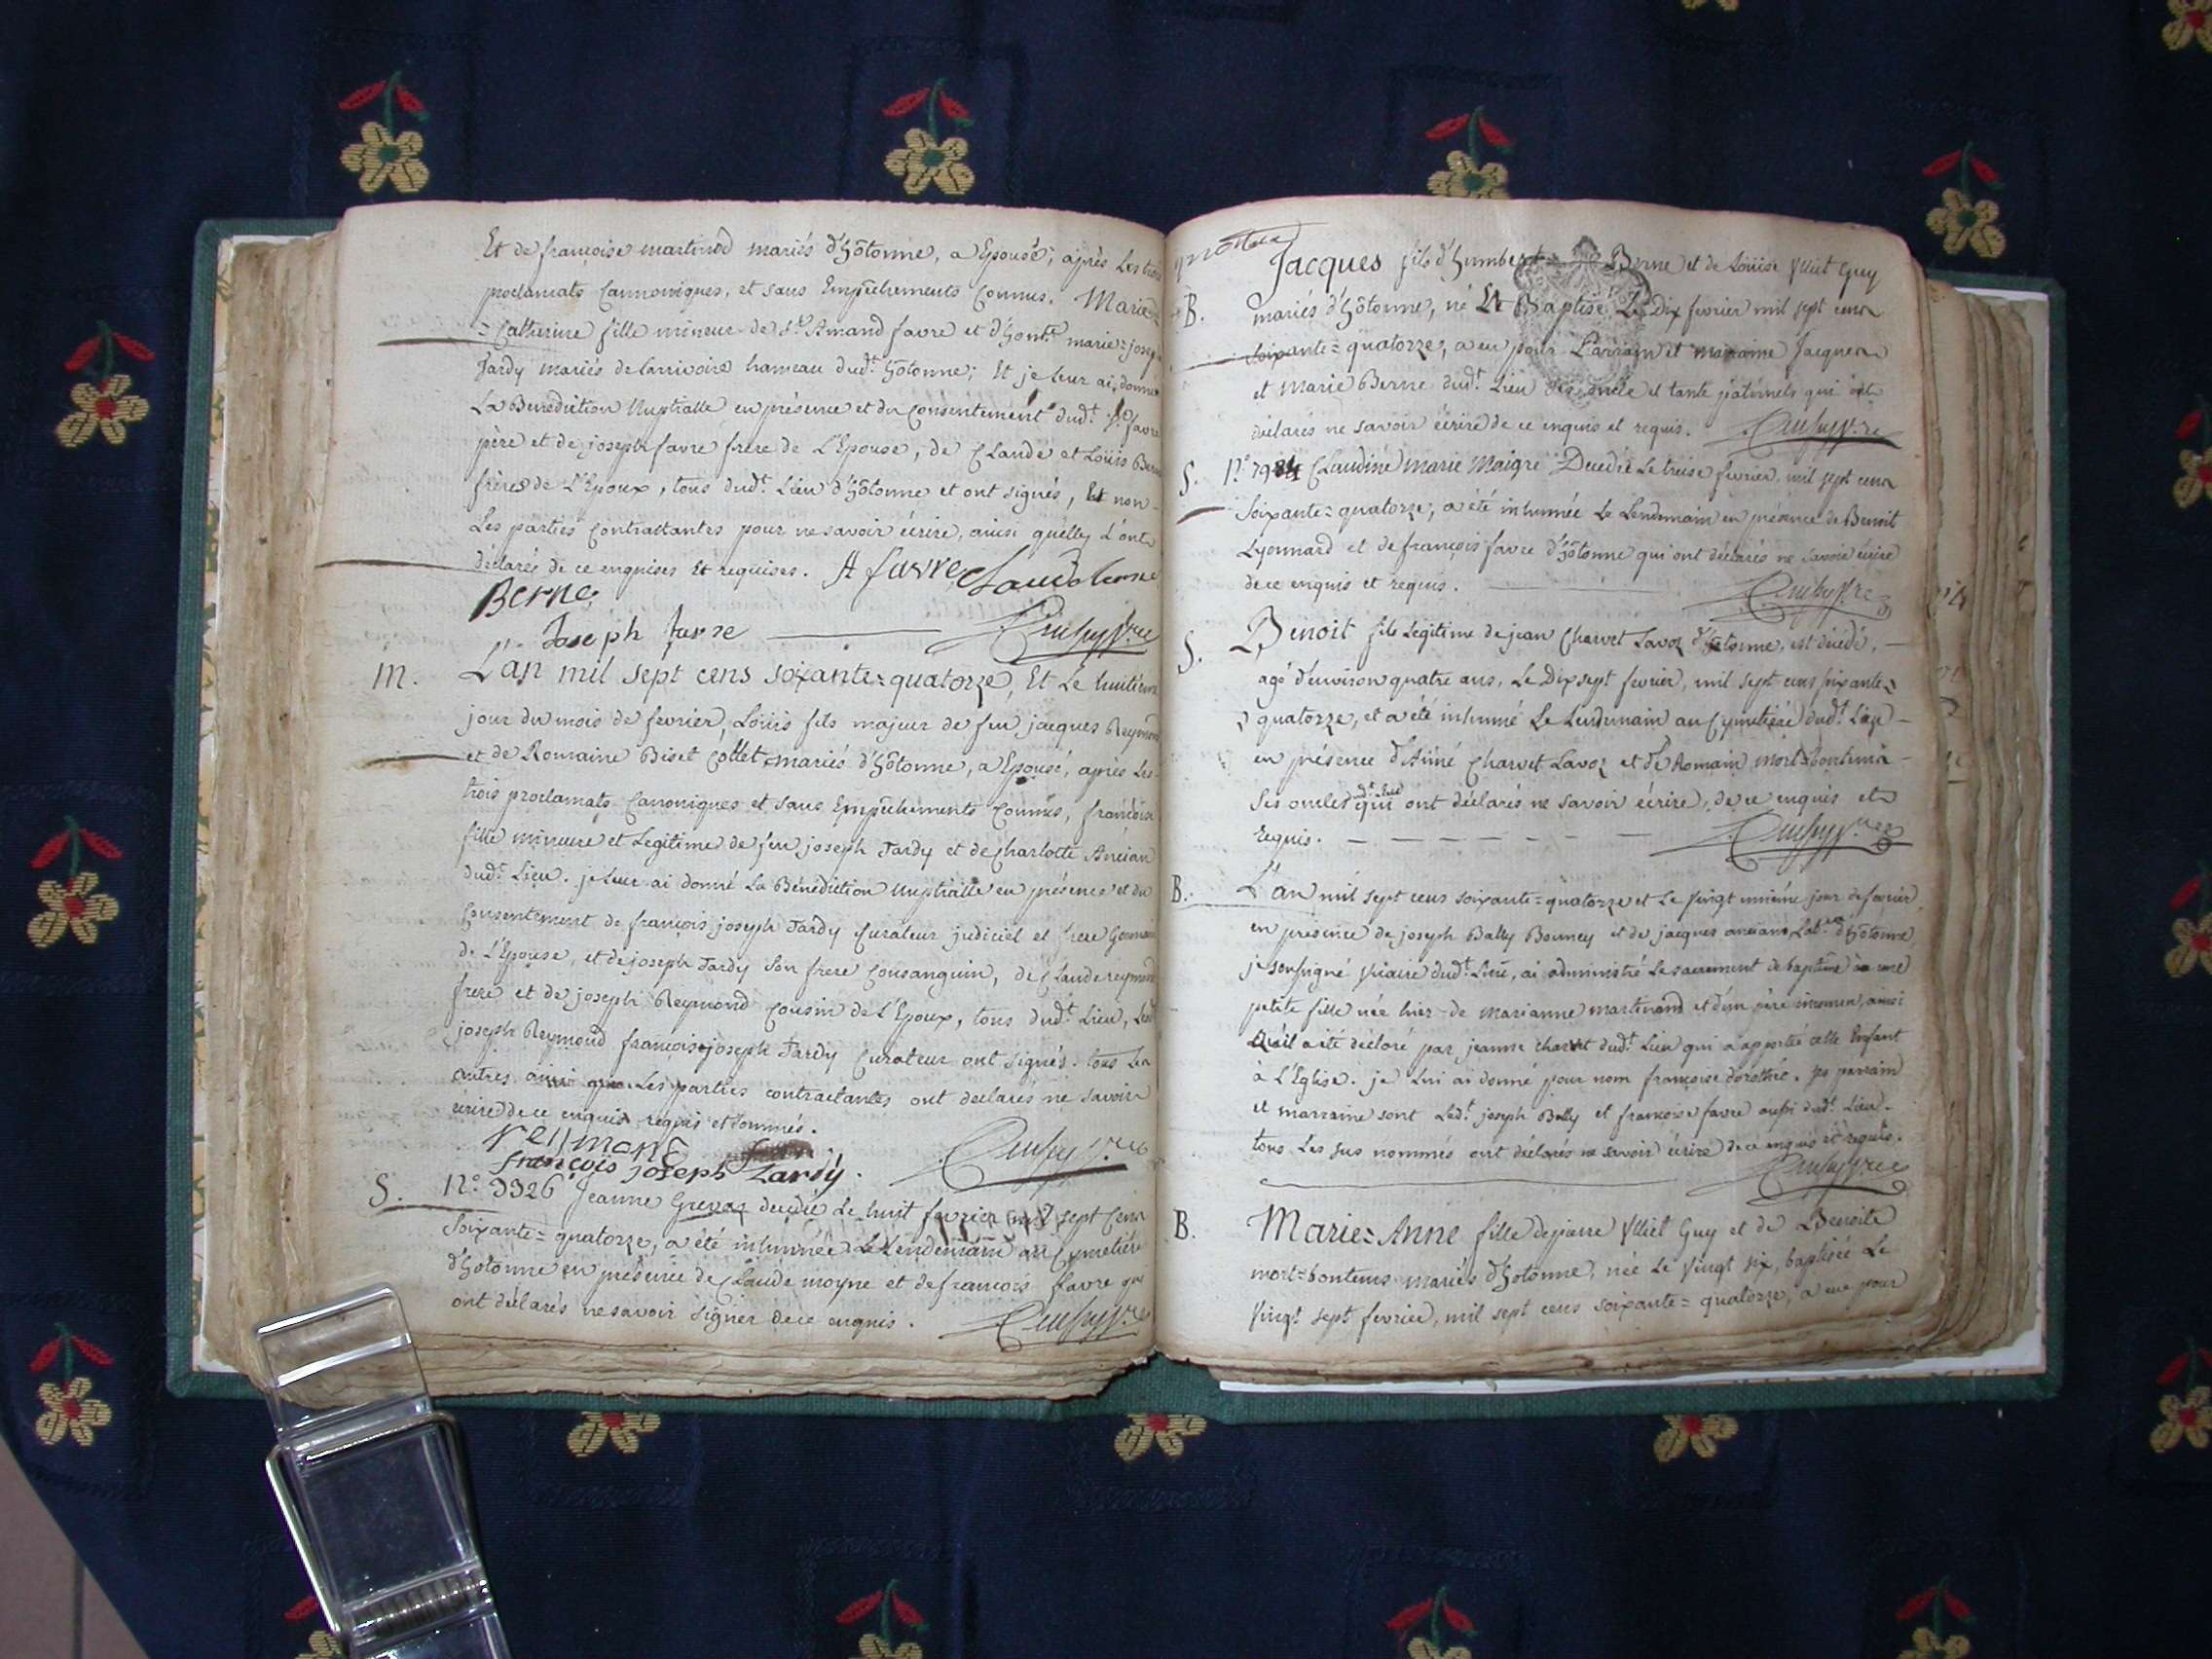 Et de françoise martinod mariés d'hôtonne, a Epousé, après Les trois
proclamats Cannoniques, et sans Empêchements Connus. Marie=
=Catherine fille mineur de Sr. Amand favre et d'honte. marie=joseph
Tardy mariés de Larrivoire hameau dudt. hôtonne; Et je Leur ai donné
La Benediction Nuptialle en présence et du Consentement dudt. Sr. favre
père et de joseph favre frère de L'Epouse, de Claude et Loüis Berne
frères de L'Epoux, tous dudt. Lieu d'hôtonne et ont signés, Et non
Les parties Contractantes pour ne savoir écrire, ainsi quelles L'ont
déclarés de ce enquises Et requises. A favre Claude berne
Berne
Joseph favre
M. L'an mil sept cens soixante=quatorze, Et Le huitième
jour du mois de fevrier, Loüis fils majeur de feu jacques Reymond
et de Romaine Biset Collet mariés d'hôtonne, a Epousé, après Les
trois proclamats Canoniques et sans Empêchements Connus, françoise
fille mineure et Legitime de feu joseph Tardy et de Charlotte Ancian
dudt. Lieu. je Leur ai donné La Bénédiction Nuptialle en présence et du
Consentement de françois joseph Tardy Curateur judiciel et frere Germain
de L'Epouse, et de joseph Tardy Son frere Consanguin, de Claude reymond
frere et de joseph Reymond Cousin de L'Epoux, tous dudt. Lieu, Led.
joseph Reymond françois joseph Tardy Curateur ont signés. tous Les
autres ainsi que Les parties contractantes ont declarés ne savoir
écrire de ce enquis requis et sommés.
reymond
françois joseph Tardy.
S. N°. 3326 Jeanne Grevaz decedée Le huit fevrier mil sept Cens
Soixante=quatorze, a été inhumée Le Lendemain au Cymetière
d'hotonne en présence de Claude moyne et de françois favre qui
ont déclarés ne savoir signer de ce enquis.
Jacques fils d'humbert Berne et de Loüise Ylliet Guy
B. mariés d'hôtonne, né Et Baptisé Le Dix fevrier mil sept cens
soixante=quatorze, a eu pour Parrain et marraine Jacques
et Marie Berne dudt. Lieu ses oncle et tante paternels qui ont
déclarés ne savoir écrire de ce enquis et requis.
S. N°. 7984 Claudine Marie Maigre Decedée Le treise fevrier, mil sept cens
Soixante=quatorze, a été inhumée Le Lendemain en présence de Benoit
Lyonnard et de françois favre d'hôtonne qui ont déclarés ne savoir écrire
de ce enquis et requis.
S. Benoit fils Légitime de jean Charvet Lavoz d'hôtonne, est décédé,
agé d'environ quatre ans, Le Dix sept fevrier, mil sept cens soixante=
quatorze, et a été inhumé Le Lendemain au Cymetière dudt. Lieu
en présence d'Aimé Charvet Lavoz et de Romain mort=bontems
Ses oncles dt. Lieu qui ont déclarés ne savoir écrire, de ce enquis et
requis.
B. L'an mil sept cens soixante=quatorze et Le vingt unième jour de fevrier,
en présence de joseph Bally Bonney et de jacques ancian, Lab. d'hôtonne
je soussigné Vicaire dudt. Lieu, ai administré Le sacrement de baptême à une
petite fille née hier de Marianne martinand et d'un père inconnu, ainsi
Qu'il a été déclaré par jeanne charvet dudt. Lieu qui a apporté cette Enfant
à L'Eglise. je Lui ai donné pour nom françoise dorothée. ses parrain
et marraine sont Ledt. joseph Bally et françoise favre aussi dudt. Lieu.
tous Les sus nommés ont déclarés ne savoir écrire de ce enquis et requis.
B. Marie=Anne fille de pierre Ylliet Guy et de Benoite
mort=bontems mariés d'hotonne, née Le vingt six, baptisée Le
vingt sept fevrier, mil sept cens soixante=quatorze, a eue pour